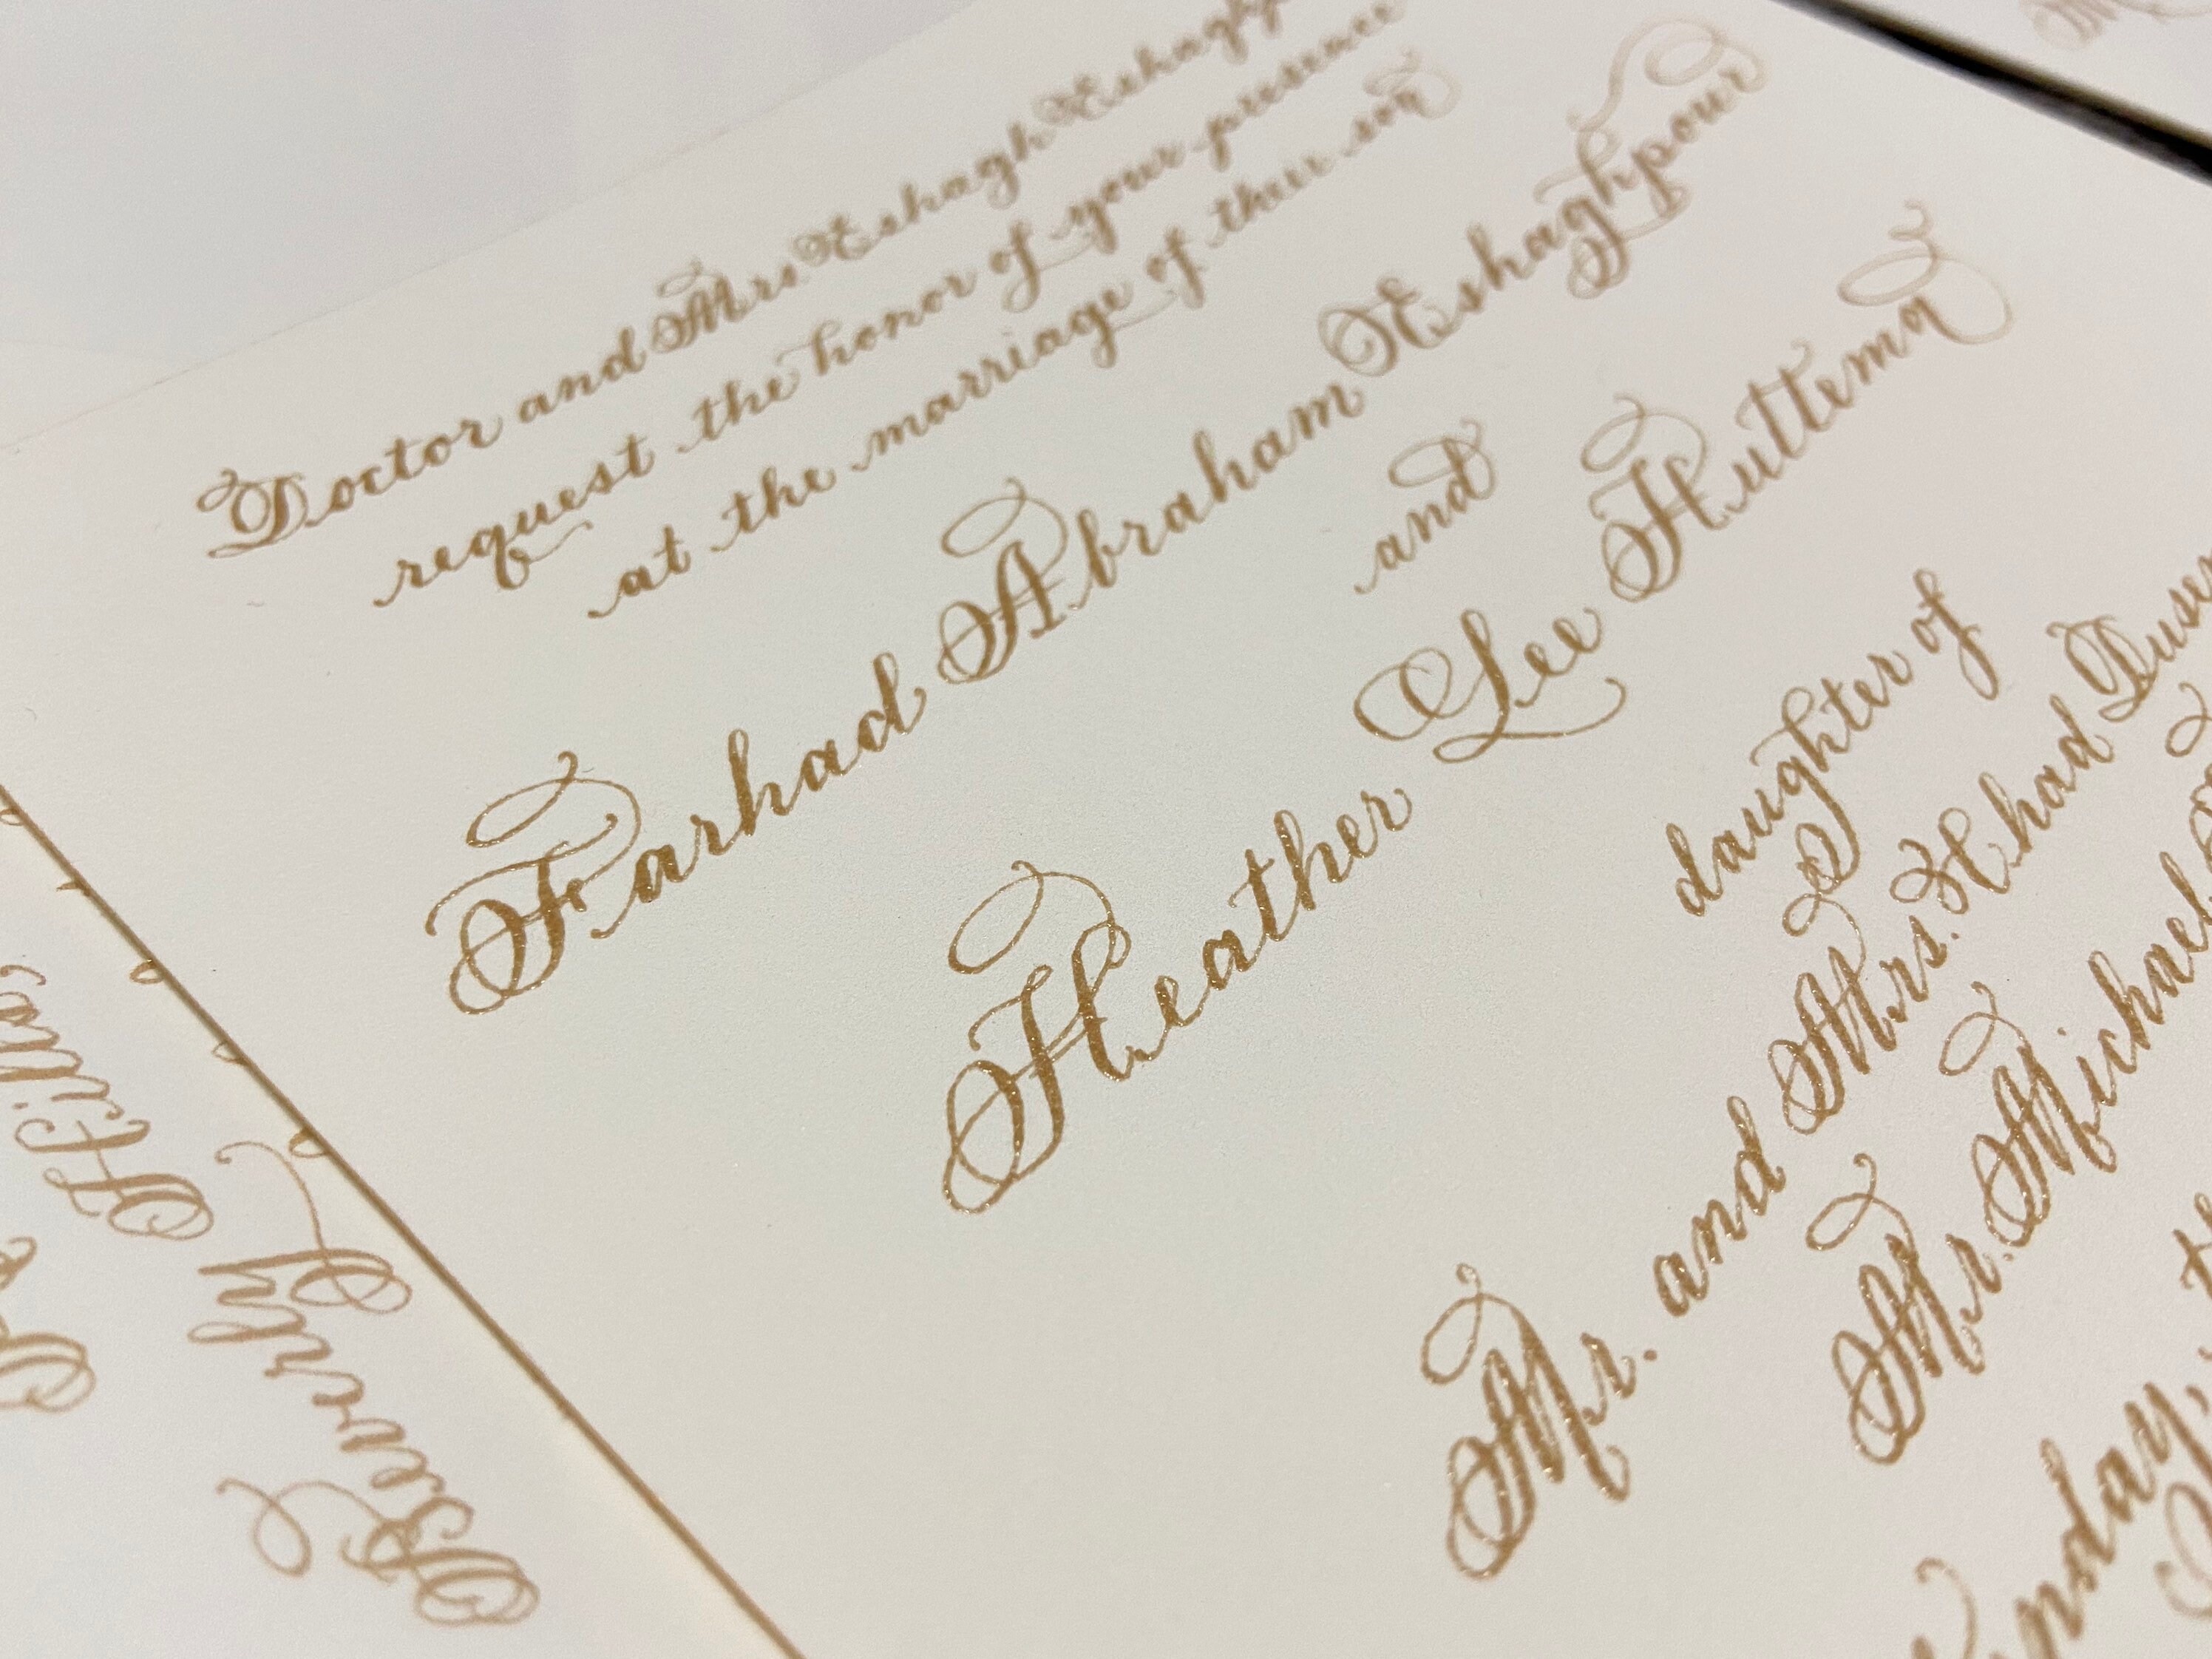 Doctor and Mrs. Eshagh
request the honor of your presence
at the marriage of their son
Farhad Abraham Eshaghpour
and
Heather Lee Huttema
daughter of
Mr. and Mrs. Chad
Mr. Michael
Beverly
Hills,